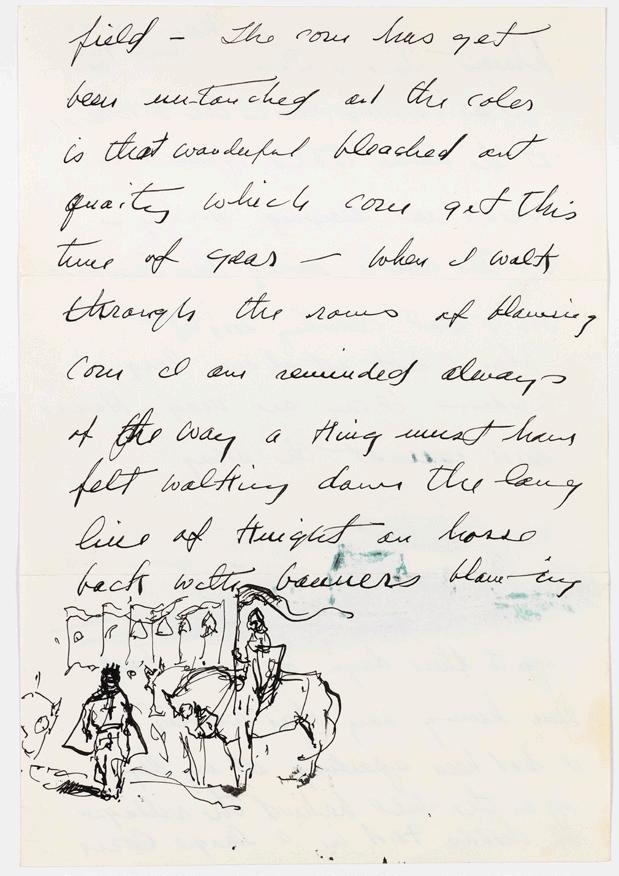 field - The corn has yet
been un-touched and the color
is that wonderful bleached out
quaity which corn get this
time of year - When I walk
through the rows of blowing
corn I am reminded always
of the way a King must have
felt walking down the long
line of Knight on horse
back with banners blow-ing